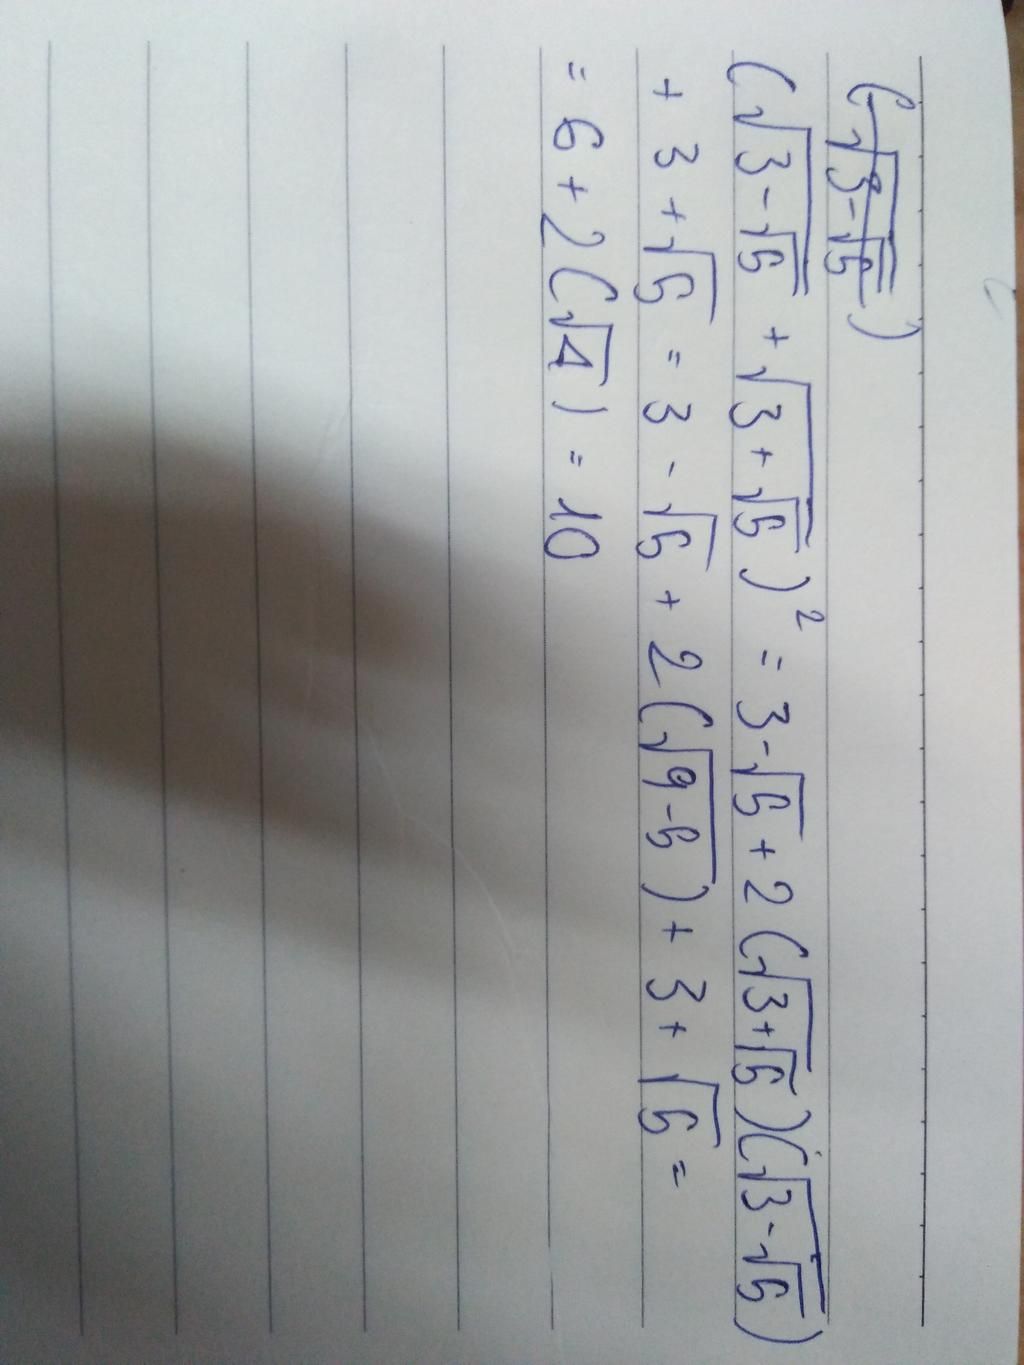 (√(3-√5))
(√(3-√5) + √(3+√5))² = 3-√5 + 2(√(3+√5))(√(3-√5))
+ 3+√5 = 3 - √5 + 2(√(9-5)) + 3 + √5 =
= 6 + 2(√4) = 10